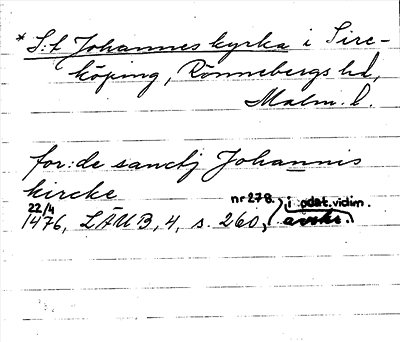 * S:t Johannes kyrka i Sire-
köping, Rönnebergs hd,
Malm. l.
for: de sanctj Johannis
kircke
22/4 1476, LÄUB, 4, s. 260, nr 278. i odat. vidim.